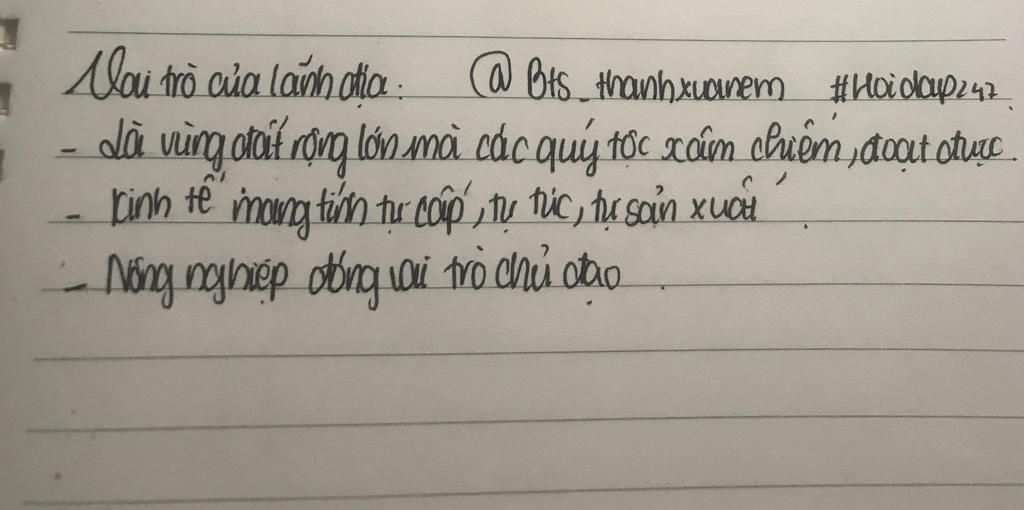 Vai trò của lãnh địa: @Bts_thanhxuanem #Hoidap247.
- Là vùng đất rộng lớn mà các quý tộc xâm chiếm, đoạt được.
- Kinh tế mang tính tự cấp, tự túc, tự sản xuất.
- Nông nghiệp đóng vai trò chủ đạo.